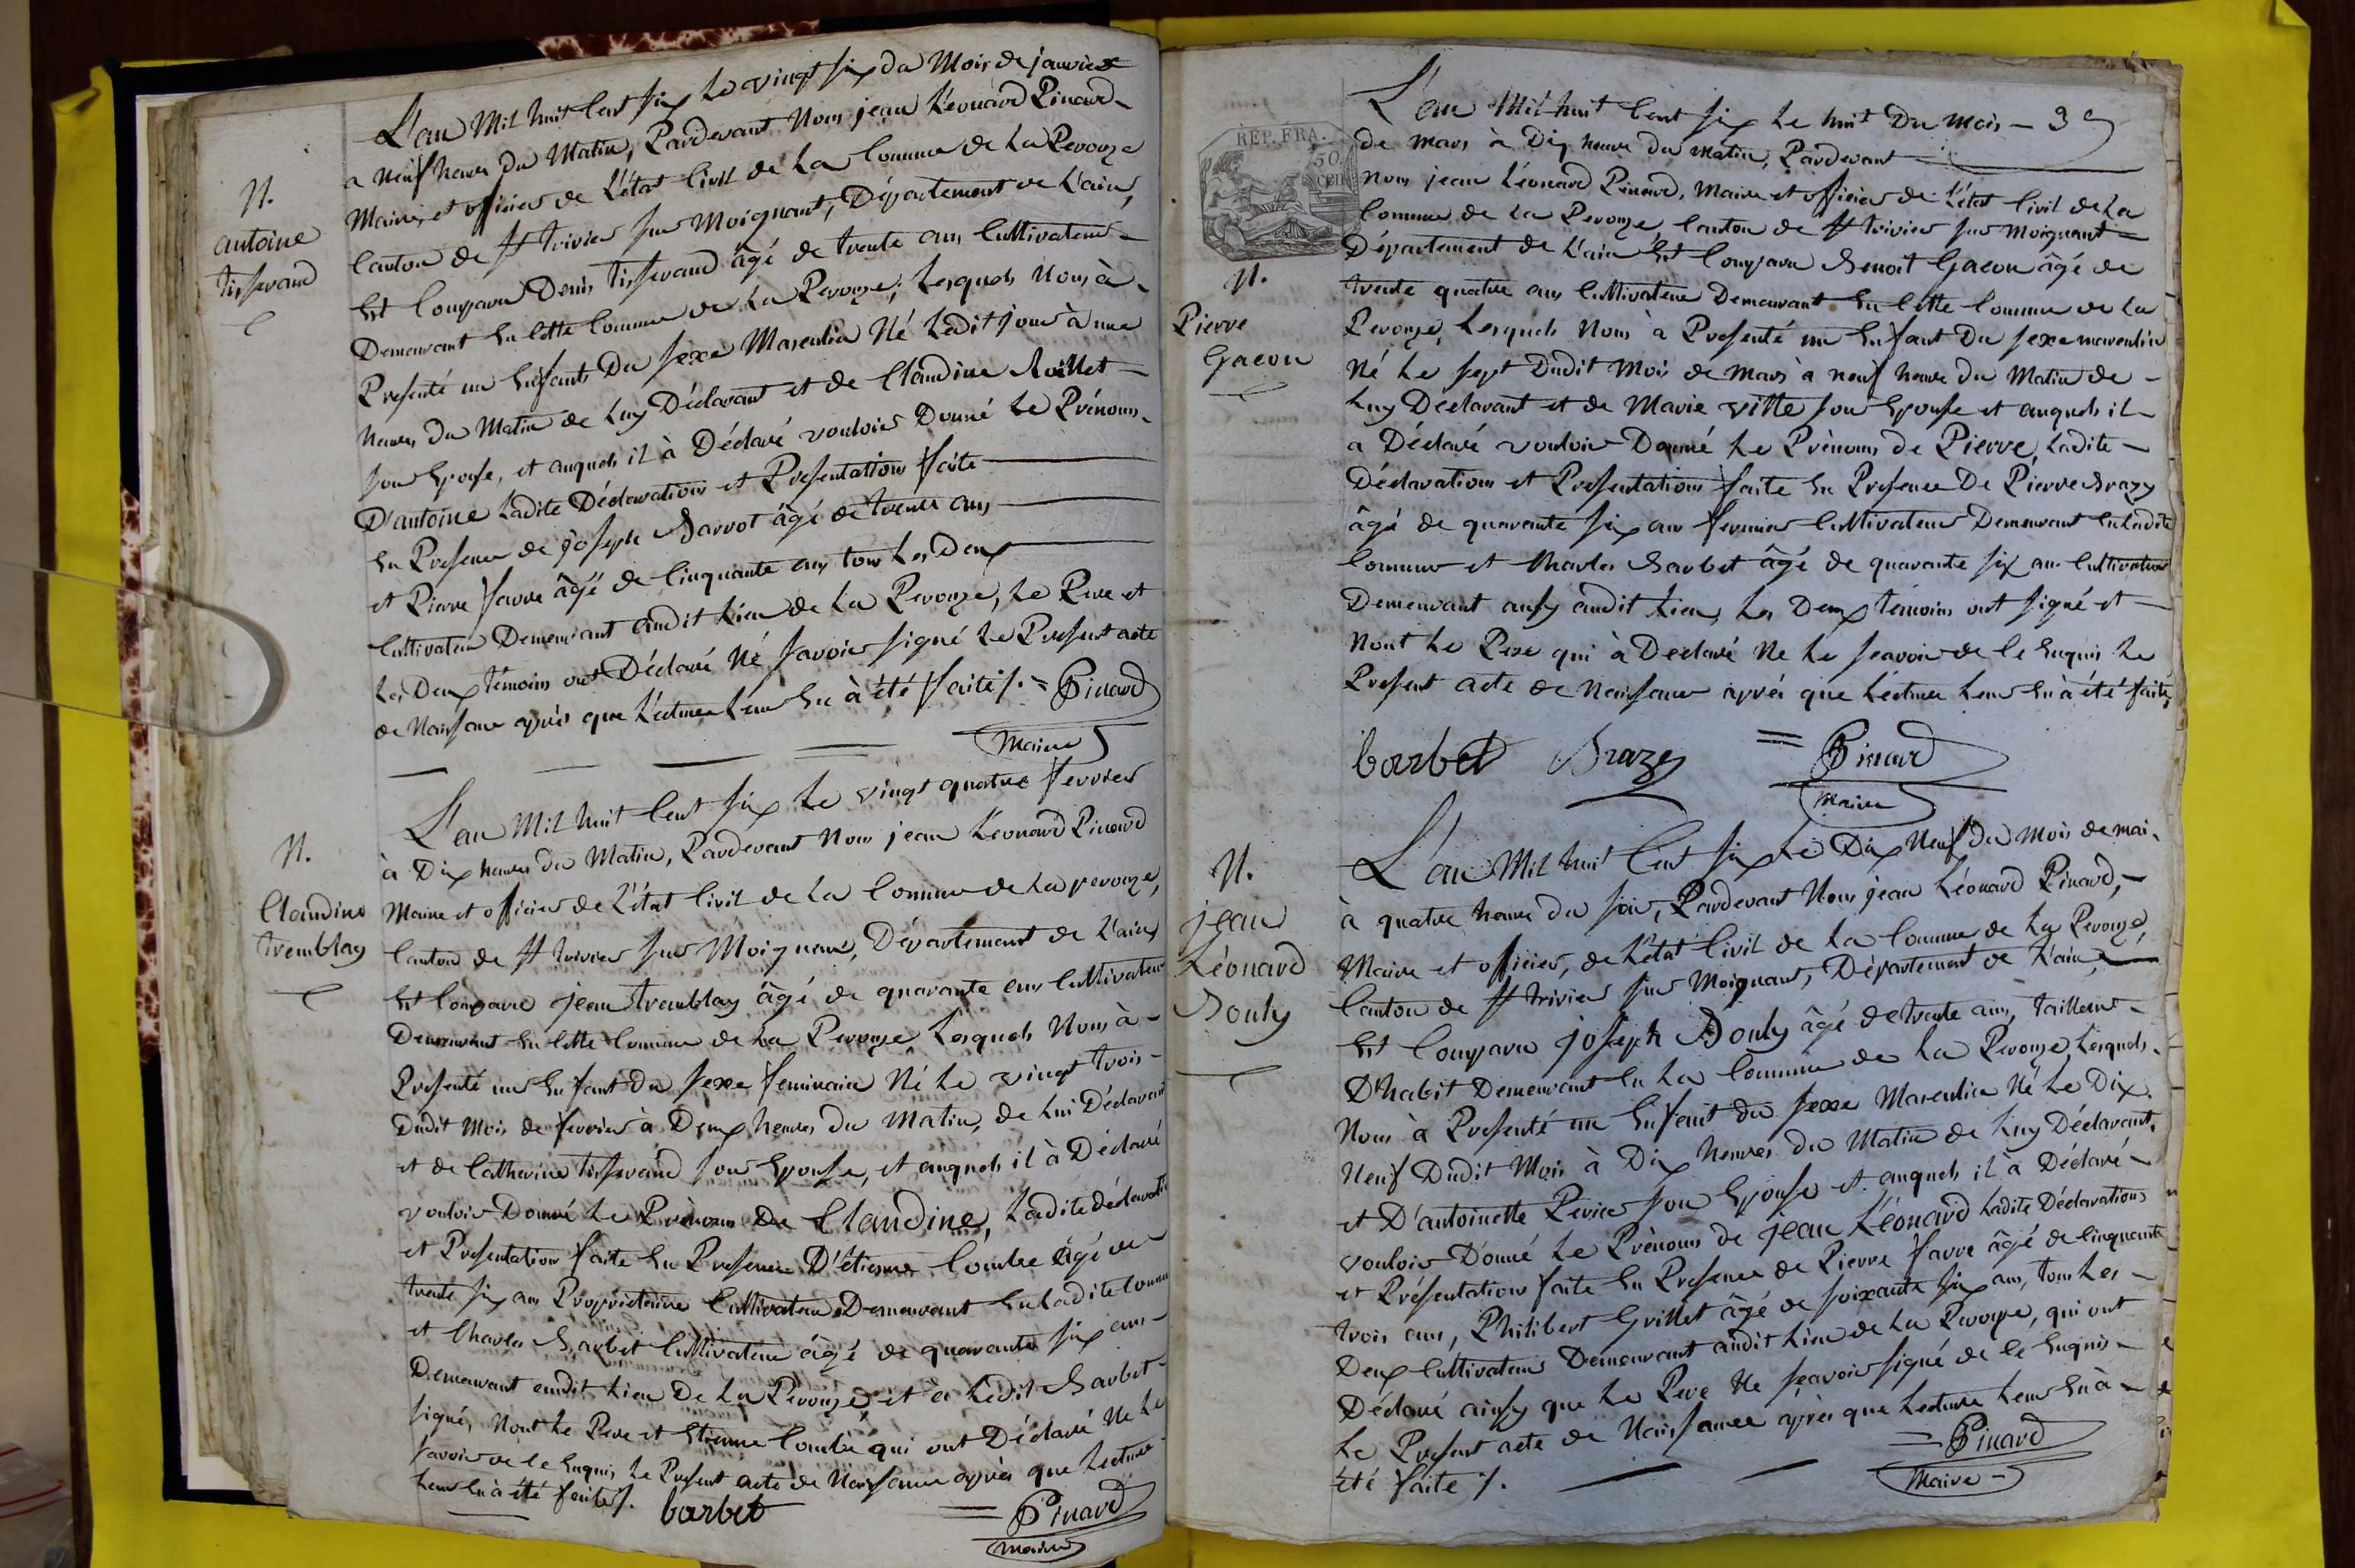 L'an Mil huit Cent six le vingt six du Mois de janvier
a neuf heures du Matin, Pardevant Nous jean Léonard Pinard
Maire et officier de L'état Civil de La Commune de La Perouze
Canton de St trivier sur Moignant, Département de L'ain,
Est Comparu Denis tisserand âgé de trente ans Cultivateur
Demeurant En Cette Commune de La Perouze, Lesquels Nous à
Presenté un Enfants Du sexe Masculin Né Ledit jour à une
heures du Matin de Luy Déclarant et de Claudine
son Epouse, et auquels il à Déclaré vouloir Donné Le Prénoms
D'antoine Ladite Déclaration et Presentation faite
En Presence de joseph Barrot âgé de trente ans
et Pierre favre âgé de Cinquante ans tous Les Deux
Cultivateur Demeurant audit Lieu de La Perouze, Le Pere et
Les Deux témoins ont Déclaré Né savoir signé Le Present acte
de Naissance après que Lecture Leur En à été faite /. = Pinard
Maire
N.
antoine
tisserand
L'an Mil huit Cent six Le vingt quatre fevrier
à Dix heures du Matin, Pardevant Nous jean Léonard Pinard
Maire et officier de L'état Civil de La Commune de La perouze,
Canton de St trivier sur Moignans, Département de L'ain,
Est Comparu jean tremblay âgé de quarante ans Cultivateur
Demeurant En Cette Commune de La Perouze Lesquels Nous à
Presenté un Enfant Du sexe feminain Né Le vingt trois
Dudit Mois de fevrier à Deux heures du Matin, de Lui Déclarant
et de Catherine tisserand son Epouse, et auquels il à Déclaré
vouloir Donné Le Prénoms De Claudine, Ladite déclaration
et Presentation faite En Presence D'étienne Combe âgé de
trente six ans Propriétaire Cultivateur Demeurant En Ladite Commune
et Charles Barbet Cultivateur âgé de quarante six ans
Demeurant audit Lieu De La Perouze et à Ledit Barbet
signé, Nont Le Pere et Etienne Combe qui ont Déclaré Ne Le
savoir de Ce Enquis Le Present acte de Naissance après que Lecture
Leur En à été faite /. barbet = Pinard
Maire
N.
Claudine
tremblay
L'an Mil huit Cent six Le huit Du Mois
de mars à Dix heure du matin, Pardevant
Nous jean Léonard Pinard, Maire et officier de L'état Civil de La
Commune de La Perouze Canton de St trivier sur Moignant
Département de L'ain Est Comparu Benoit Gacon âgé de
trente quatre ans Cultivateur Demeurant En Cette Commune de La
Perouze, Lesquels Nous à Presenté un Enfant Du sexe masculin
Né Le sept Dudit Mois de Mars à neuf heure du Matin de
Luy Declarant et de Marie ville son Epouse et auquels il
a Déclaré vouloir Donné Le Prénoms de Pierre, Ladite
Déclarations et Presentations faite En Presence De Pierre Brazy
âgé de quarante six ans fermier Cultivateur Demeurant En Ladite
Commune et Charles Barbet âgé de quarante six ans Cultivateur
Demeurant ausy audit Lieu, Les Deux témoins ont signé et
Nont Le Pere qui à Declaré Ne Le scavoir de Ce Enquis Le
Present acte de Naissance après que Lecture Leur En à été faite,
barbet Brazy = Pinard
Maire
REP. FRA.
50
cen
N.
Pierre
Gacon
L'an Mil huit Cent six Le Dix Neuf Du Mois de mai
à quatre heures du soir, Pardevant Nous jean Léonard Pinard,
Maire et officier, de L'état Civil de La Commune de La Perouze,
Canton de St trivier sur Moignans, Département de L'ain,
Est Comparu joseph Bouly âgé de trente ans, tailleur
D'habit Demeurant En La Commune de La Perouze, Lesquels
Nous à Presenté un Enfant du sexe Masculin Né Le Dix
Neuf Dudit Mois à Dix heures du Matin de Luy Déclarant,
et D'antoinette Perier son Epouse et auquels il à Déclaré
vouloir Donné Le Prénoms de jean Léonard Ladite Déclarations
et Présentations faite En Presence de Pierre favre âgé de Cinquante
trois ans, Philibert Grillet âgé de soixante six ans, tous Les
Deux Cultivateurs Demeurant audit Lieu de La Perouze, qui ont
Déclaré ainsy que Le Pere Ne scavoir signé de Ce Enquis
Le Present acte de Naissance après que Lecture Leur En à
été faite /. = Pinard
Maire
N.
jean
Léonard
Bouly